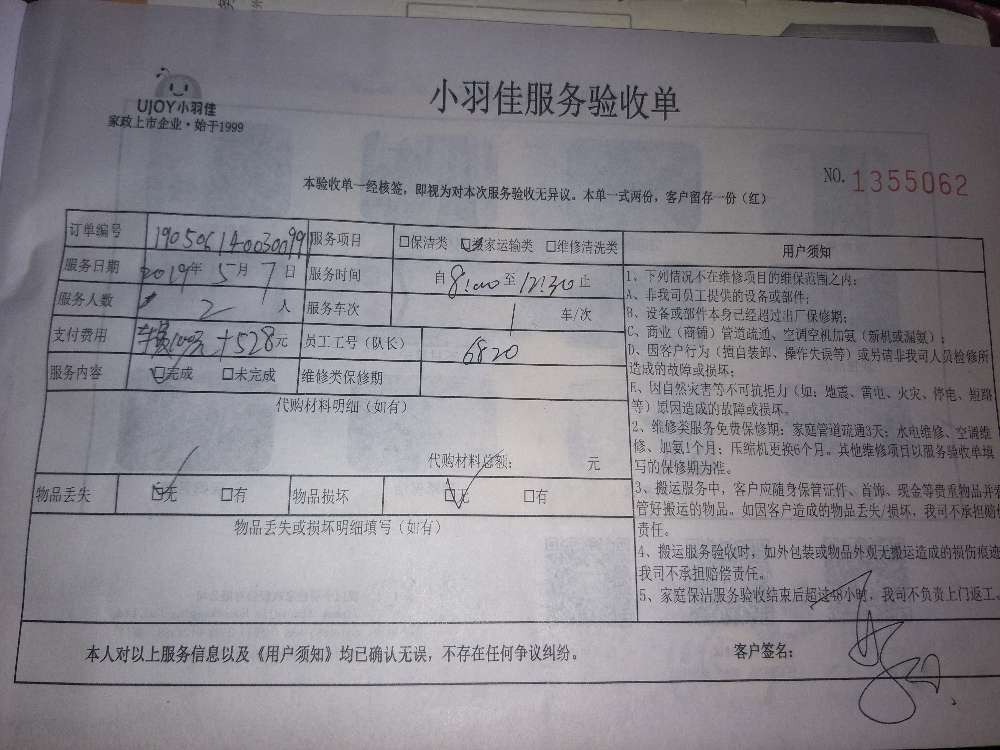 UJOY小羽佳
家政上市企业·始于1999
小羽佳服务验收单
NO. 1355062
本验收单一经核签，即视为对本次服务验收无异议。本单一式两份，客户留存一份（红）
订单编号 19050614003099 服务项目 □保洁类 □搬家运输类 □维修清洗类
服务日期 2019年 5月 7日 服务时间 自8:00至12:30止
服务人数 2 人 服务车次 1 车/次
支付费用 +528元 员工工号（队长） 6820
服务内容 □完成 □未完成 维修类保修期
代购材料明细（如有）
代购材料总额： 元
物品丢失 □无 □有 物品损坏 □无 □有
物品丢失或损坏明细填写（如有）
用户须知
1、下列情况不在维修项目的维保范围之内：
A、非我司员工提供的设备或部件；
B、设备或部件本身已经超过出厂保修期；
C、商业（商铺）管道疏通、空调空机加氨（新机或漏氨）；
D、因客户行为（擅自装卸、操作失误等）或另请非我司人员检修所
造成的故障或损坏；
E、因自然灾害等不可抗拒力（如：地震、雷电、火灾、停电、短路
等）原因造成的故障或损坏。
2、维修类服务免费保修期：家庭管道疏通3天；水电维修、空调维
修、加氨1个月；压缩机更换6个月。其他维修项目以服务验收单填
写的保修期为准。
3、搬运服务中，客户应随身保管证件、首饰、现金等贵重物品并
管好搬运的物品。如因客户造成的物品丢失/损坏，我司不承担赔
责任。
4、搬运服务验收时，如外包装或物品外观无搬运造成的损伤痕
我司不承担赔偿责任。
5、家庭保洁服务验收结束后超过48小时，我司不负责上门返工。
本人对以上服务信息以及《用户须知》均已确认无误，不存在任何争议纠纷。 客户签名：